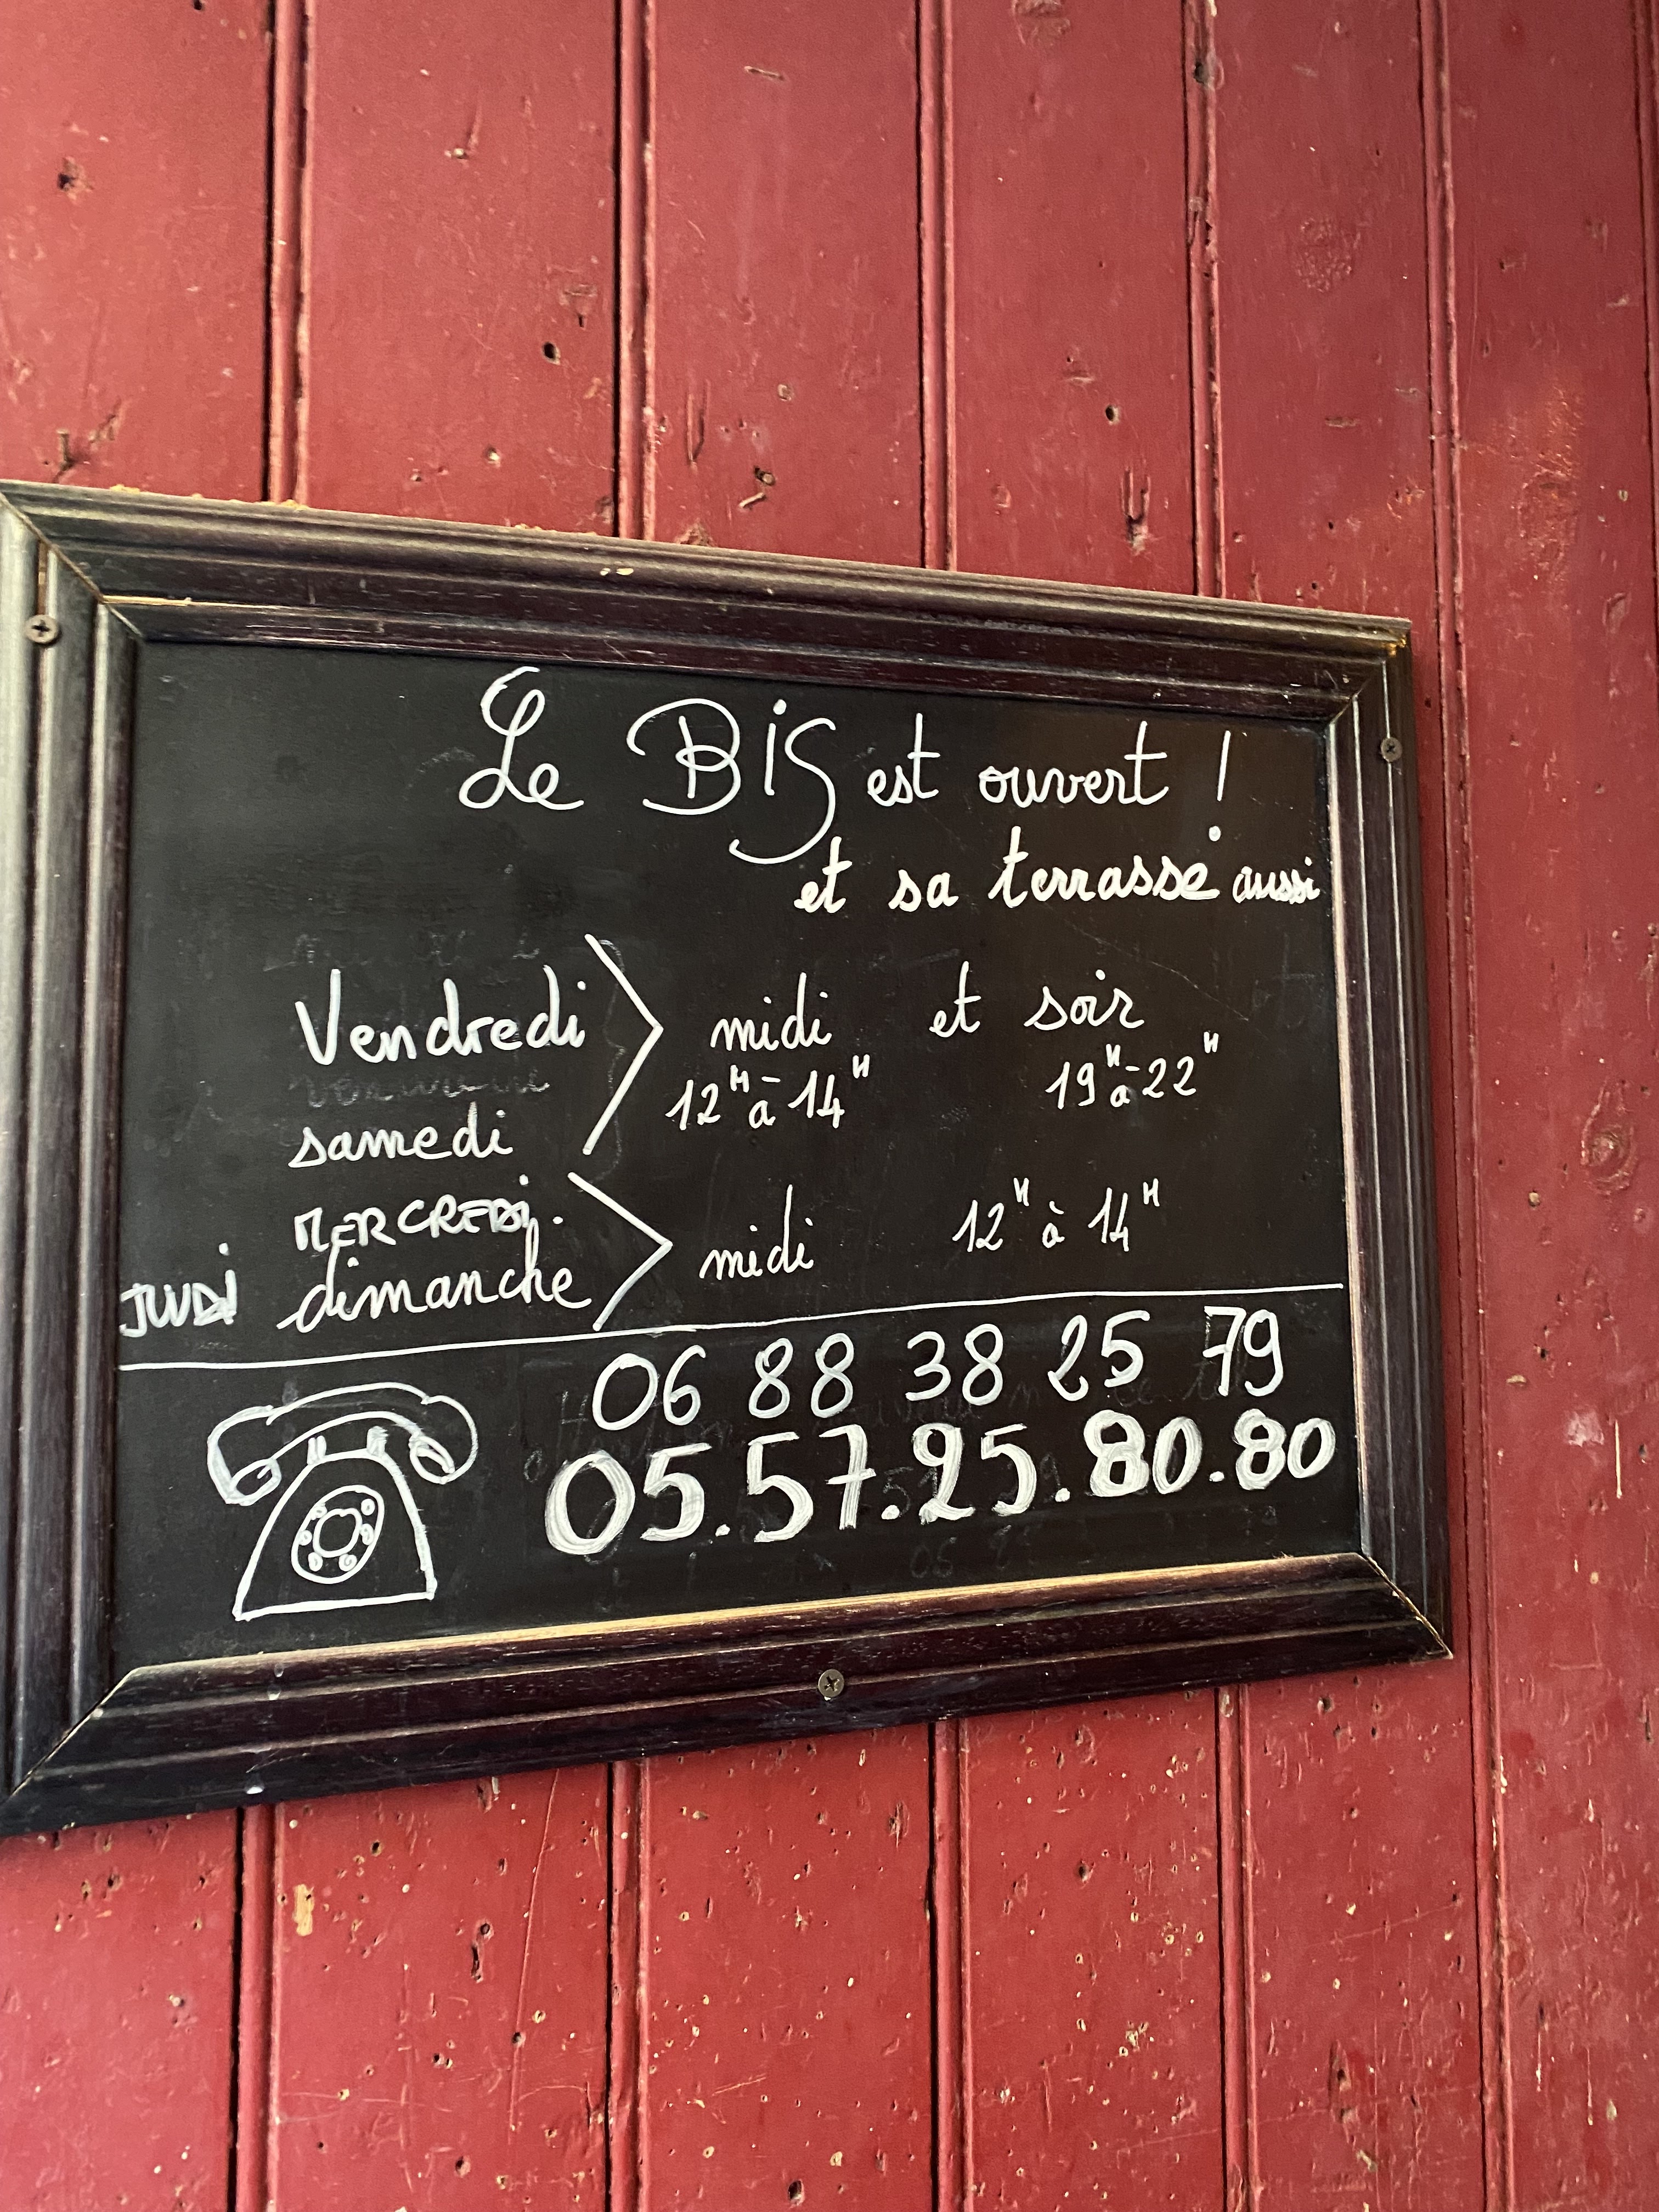 Le Bis est ouvert !
et sa terrasse aussi
Vendredi
samedi
midi et soir
12H à 14H 19H à 22H
MERCREDI.
JUDI dimanche
midi 12H à 14H
06 88 38 25 79
05.57.25.80.80